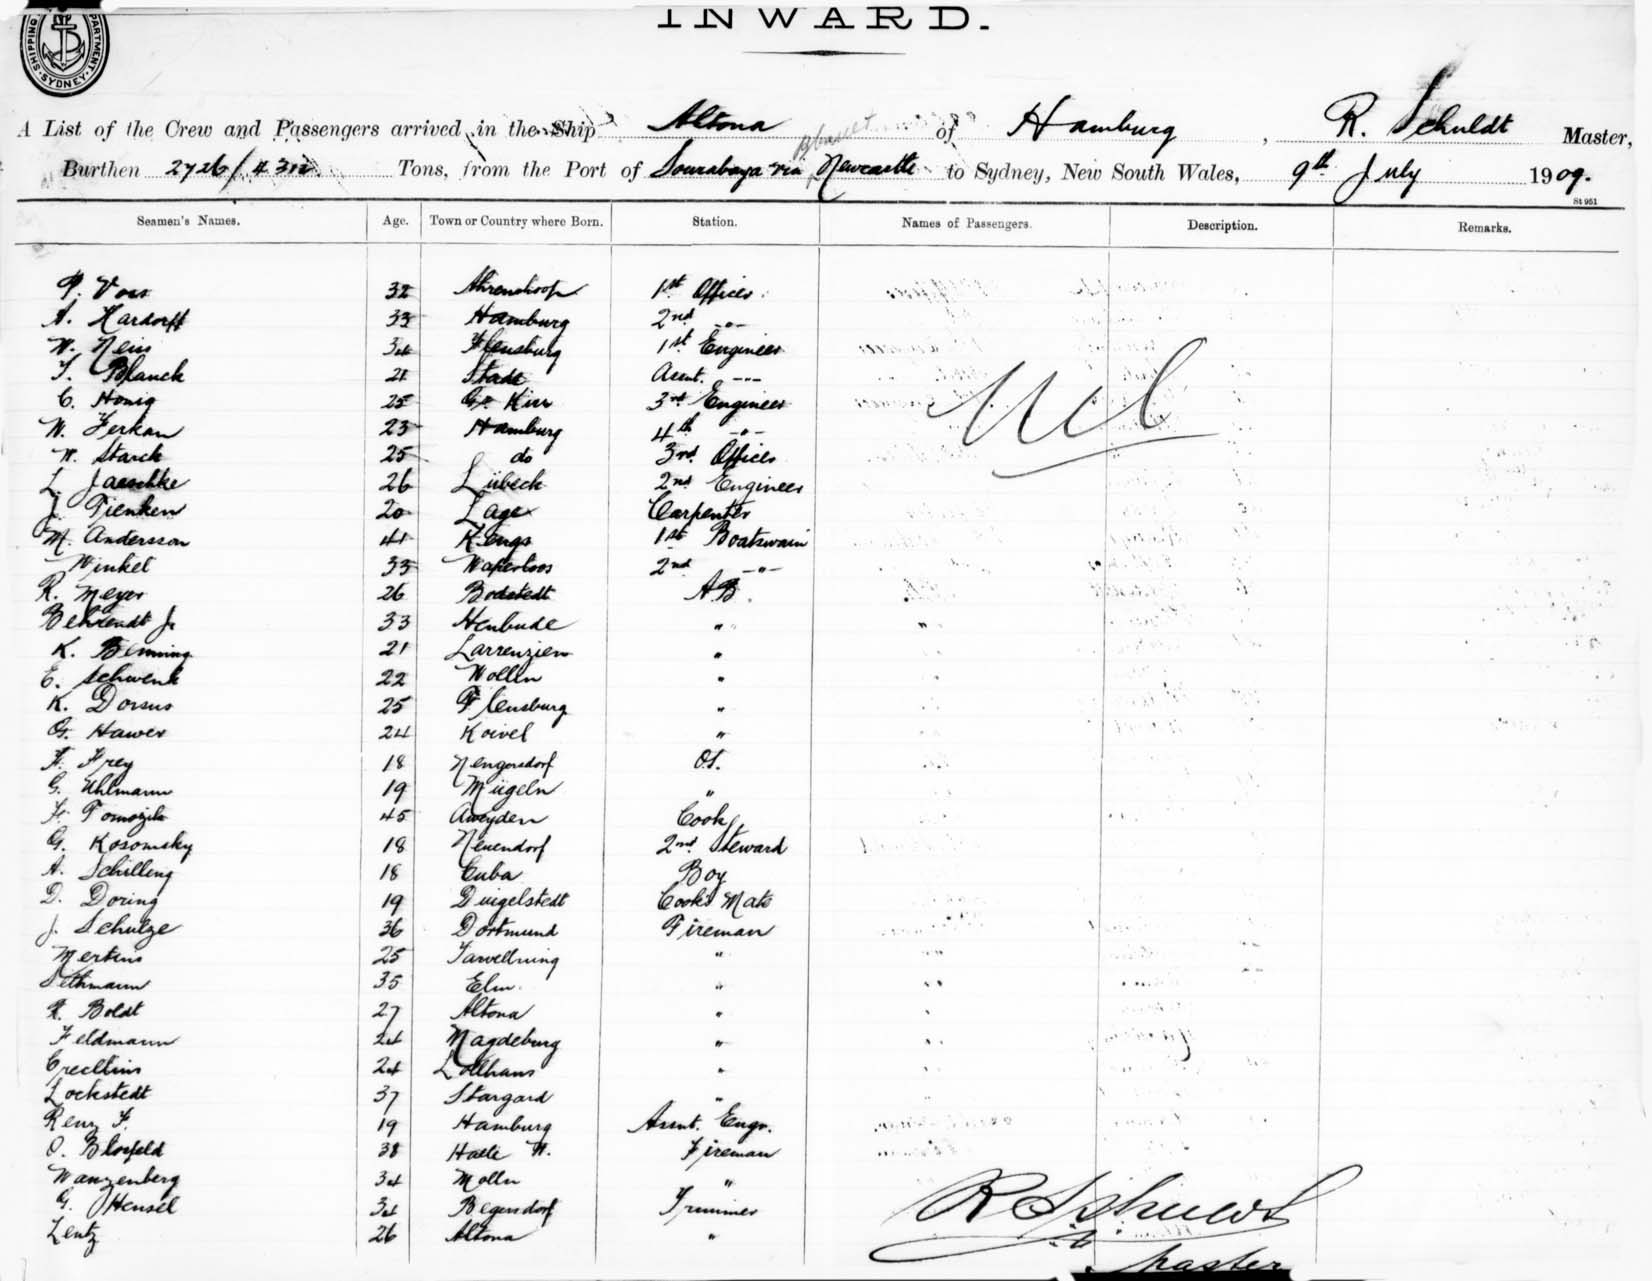 INWARD.
SHIPPING DEPARTMENT SYDNEY
A List of the Crew and Passengers arrived in the Ship Altona of Hamburg, R. Schuldt Master,
Burthen 2726/ Tons, from the Port of Sourabaya via Newcastle to Sydney, New South Wales, 9th July 1909.
St 951
Seamen's Names. Age. Town or Country where Born. Station. Names of Passengers. Description. Remarks.
P. Voss 32 Ahrenshoop 1st Officer
A. Hardorff 33 Hamburg 2nd -"-
W. Neiss 34 Flensburg 1st Engineer
F. Blanck 21 Stade Asst. -"-
C. Honig 25 Gr. 3rd Engineer
W. Ferkan 23 Hamburg 4th -"-
W. Starck 25 do 3rd Officer
L. Jaeschke 26 Lübeck 2nd Engineer
J. Tienken 20 Lage Carpenter
M. Andersson 41 1st Boatswain
Winkel 33 2nd -"-
R. Meyer 26 Bodstedt A.B.
Behrendt J. 33 Heubude "
K. Benning 21 Larrenzien "
E. Schwenk 22 Wolln "
K. Dorsus 25 Flensburg "
G. Hawer 24 Koivel "
F. Frey 18 Nengersdorf O.S.
G. Uhlmann 19 Mügeln "
45 Aweyden Cook
G. Kosomsky 18 Neuendorf 2nd Steward
A. Schilling 18 Cuba Boy
D. Doring 19 Dingelstedt Cooks Mate
J. Schulze 36 Dortmund Fireman
Mertins 25 "
Sethmann 35 Elm "
R. Boldt 27 Altona "
Feldmann 24 Magdeburg "
24 "
Lockstedt 37 Stargard "
Renz F. 19 Hamburg Assnt. Engr.
O. Blosfeld 38 Halle Fireman
Wanzenberg 34 Molln "
G. Hensel 34 Begersdorf Trimmer
Lentz 26 Altona "
Nil
R Schuldt
Master